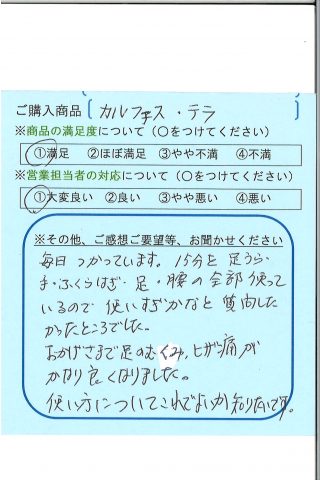 ご購入商品 〔 カルフェス・テラ
※商品の満足度について（〇をつけてください）
①満足 ②ほぼ満足 ③やや不満 ④不満
※営業担当者の対応について（〇をつけてください）
①大変良い ②良い ③やや悪い ④悪い
※その他、ご感想ご要望等、お聞かせください
毎日 つかっています。15分と 足うら・
手・ふくらはぎ・足・腰の全部 使って
いるので 使いすぎかなと 質問した
かったところでした。
おかげさまで足のむくみ、ヒザ痛が
かなり良くなりました。
使い方についてこれでよいか知りたいです。